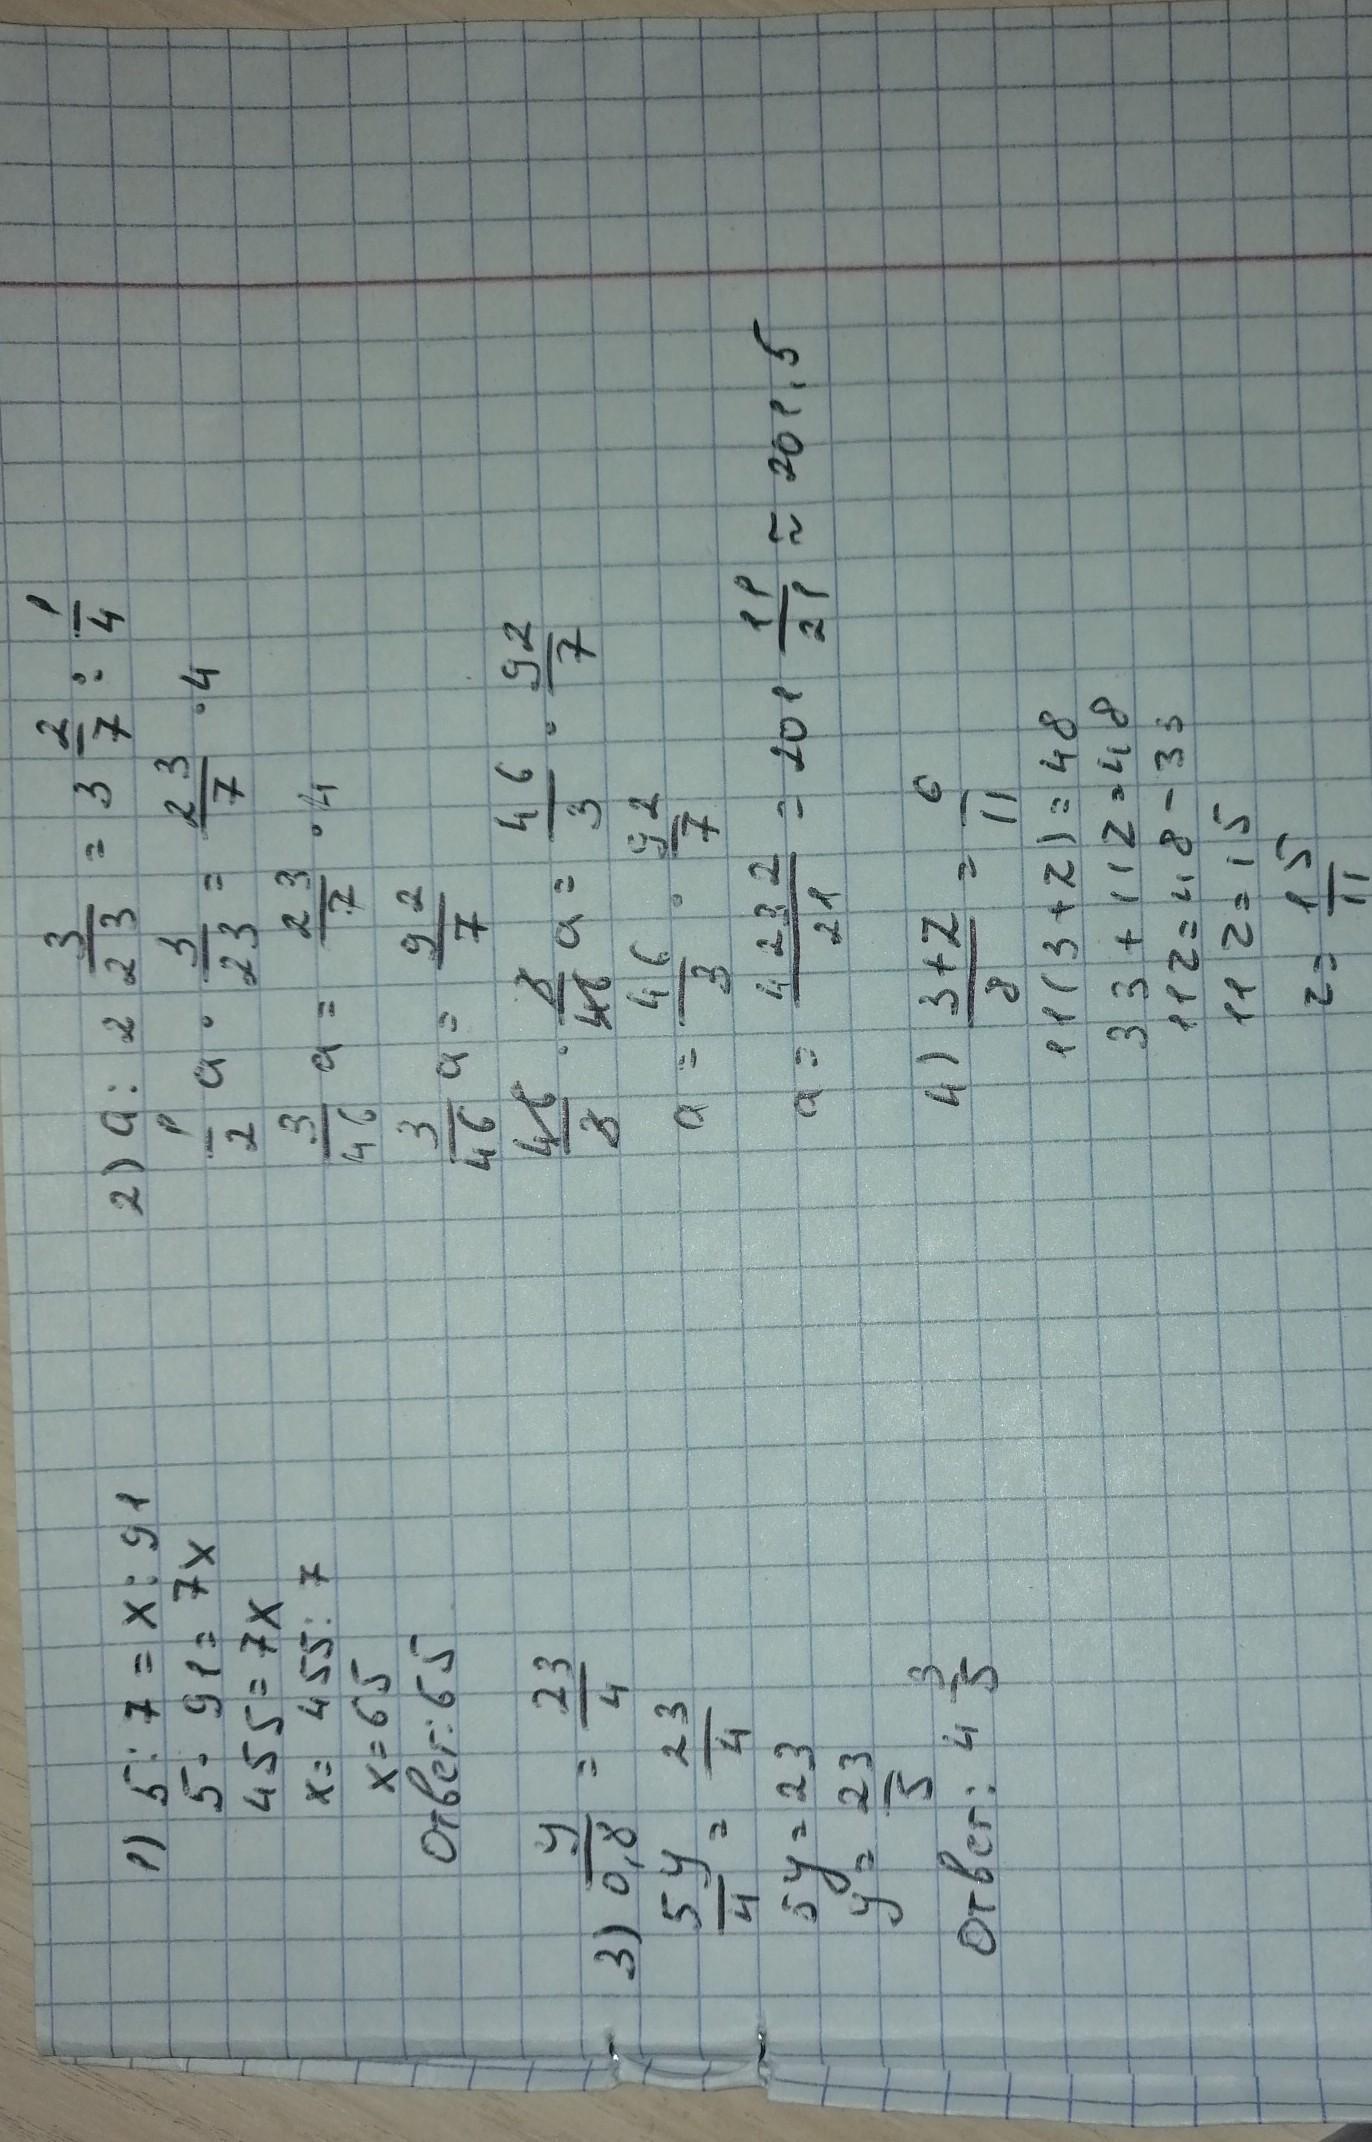 1) 5 : 7 = x : 91
5 · 91 = 7x
455 = 7x
x = 455 : 7
x = 65
Ответ: 65
2) a : 2 3/23 = 3 2/7 : 1/4
1/2 a · 3/23 = 23/7 · 4
3/46 a = 23/7 · 4
3/46 a = 92/7
46/3 · 3/46 a = 46/3 · 92/7
a = 46/3 · 92/7
a = 4232/21 = 201 11/21 ≈ 201,5
3) y/0,8 = 23/4
5y/4 = 23/4
5y = 23
y = 23/5
Ответ: 4 3/5
4) 3+z/8 = 6/11
11(3+z) = 48
33 + 11z = 48
11z = 48 - 33
11z = 15
z = 15/11